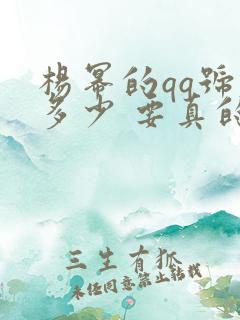 楊冪的qq號
多少 要真的
三生有狐
未经同意禁止转载